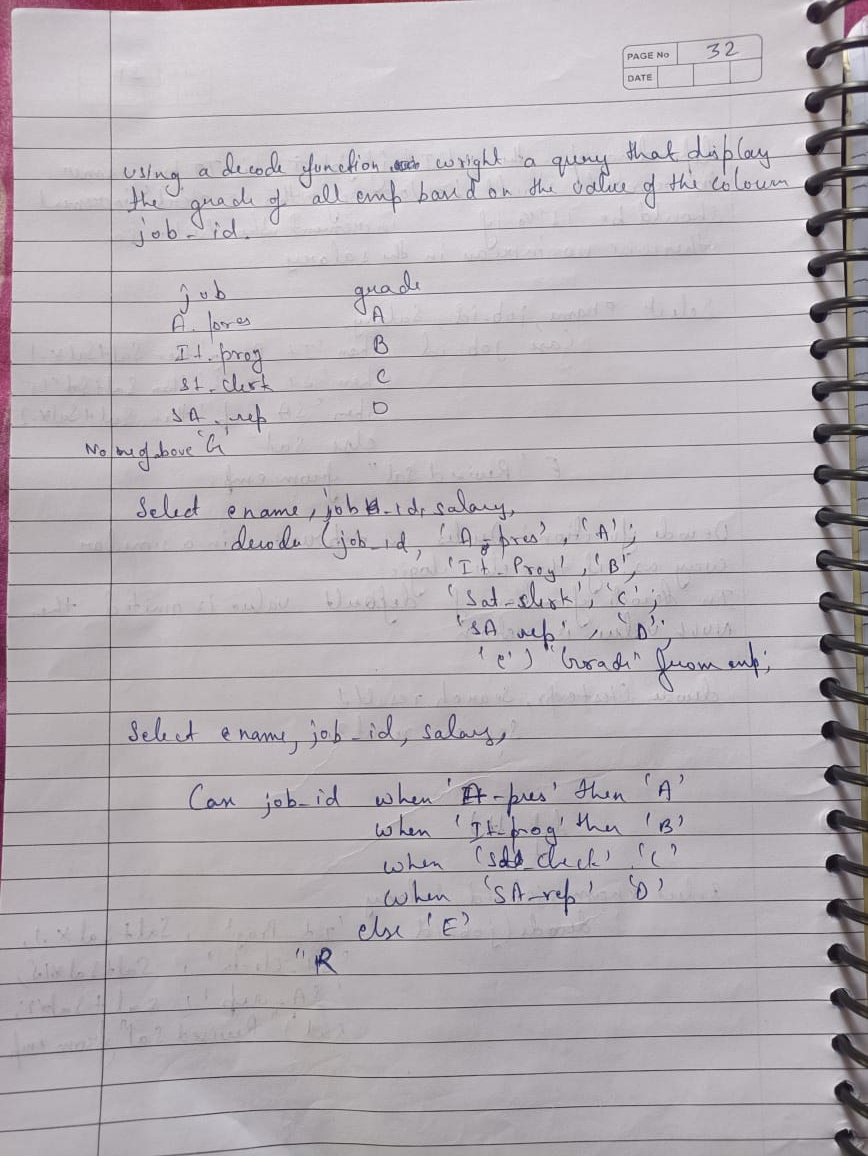 PAGE No 32
DATE
using a decode function wright a query that display
the grade of all emp based on the value of the coloum
job-id.
job grade
A. pres A
It. prog B
St. clerk C
SA. rep D
None of above 'G'
Select ename, job-id, salary,
decode (job-id, 'A-pres', 'A',
'It-Prog', 'B',
'Sat-clerk', 'C',
'SA rep', 'D',
'e') "Grade" from emp;
Select ename, job-id, salary,
Case job-id when 'A-pres' then 'A'
when 'It-prog' then 'B'
when 'St-clerk' 'C'
when 'SA-rep' 'D'
else 'E'
"R